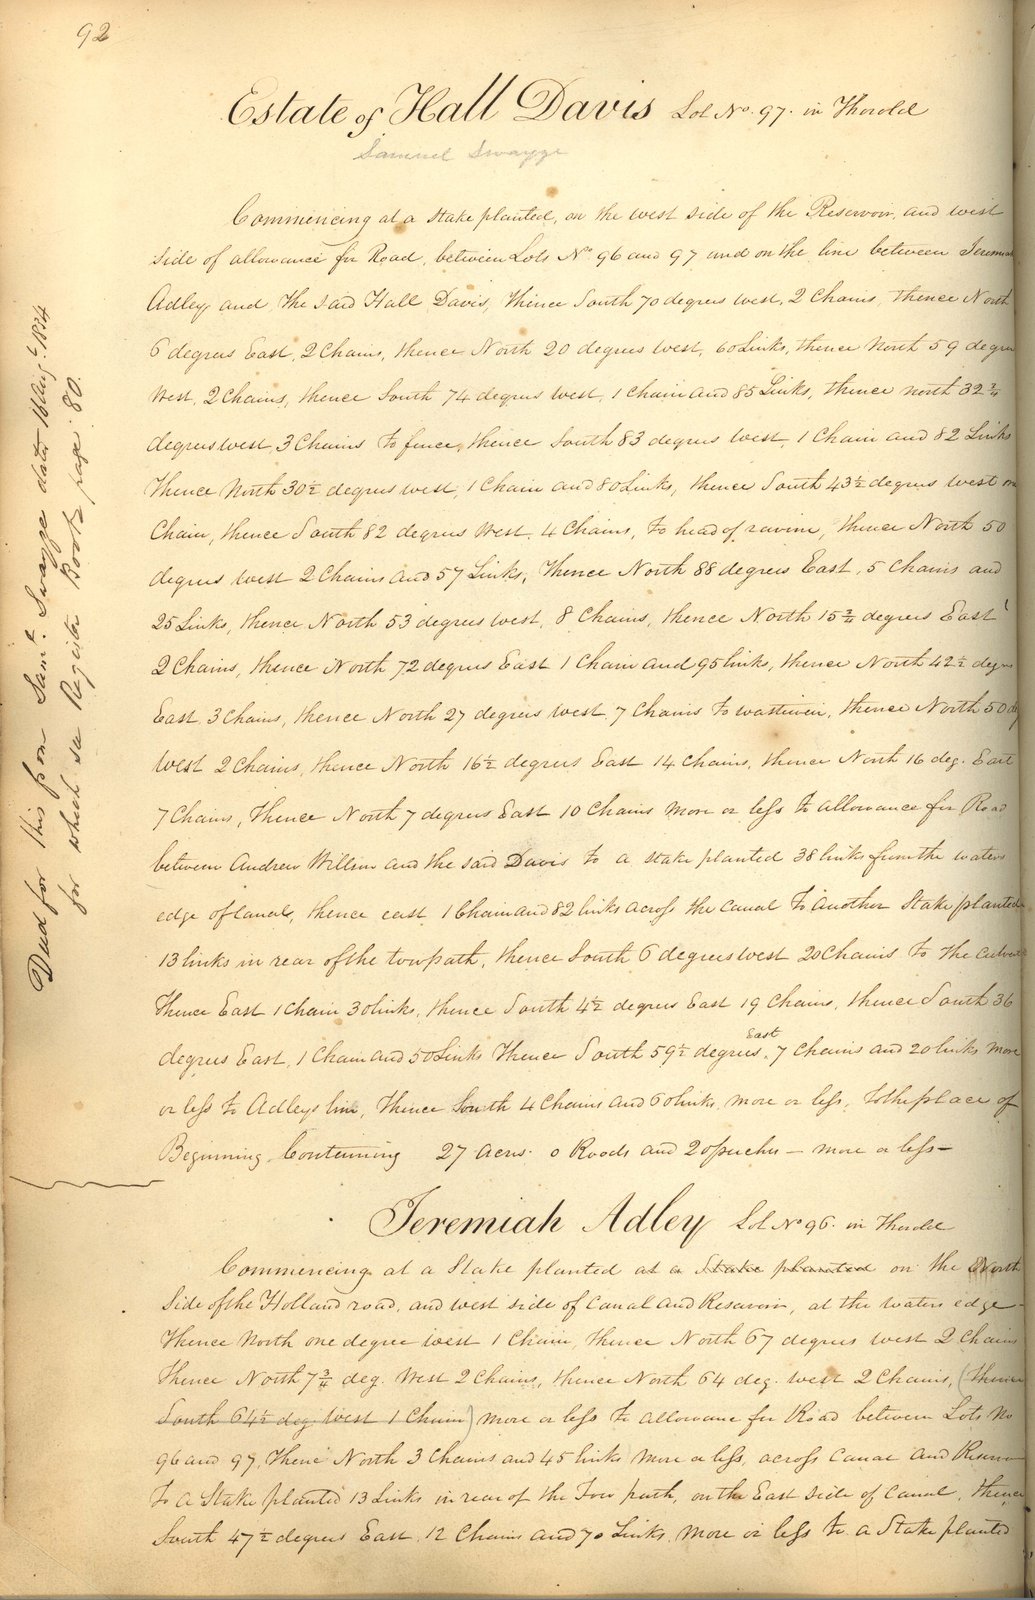 92
Estate of Hall Davis Lot No. 97. in Thorold
Samuel Swayze
Commencing at a stake planted, on the west side of the Reservoir, and west
side of allowance for Road, between Lots No. 96 and 97 and on the line between Jeremiah
Adley and the said Hall Davis, thence South 70 degrees west, 2 Chains, thence North
6 degrees East, 2 Chains, thence North 20 degrees west, 60 Links, thence north 59 degrees
West, 2 Chains, thence South 74 degrees west, 1 Chain and 85 Links, thence north 32
degrees west, 3 Chains to fence, thence South 83 degrees west, 1 Chain and 82 Links
Thence North 30½ degrees west, 1 Chain and 80 Links, thence South 43½ degrees west one
Chain, thence South 82 degrees West, 4 Chains, to head of ravine, thence North 50
degrees west 2 Chains and 57 Links, thence North 88 degrees East, 5 Chains and
25 Links, thence North 53 degrees west, 8 Chains, thence North 15½ degrees East
2 Chains, thence North 72 degrees East 1 Chain and 95 links, thence North 42½ degrees
East, 3 Chains, thence North 27 degrees west, 7 Chains to thence North 50 deg
West 2 Chains, thence North 16½ degrees East 14 Chains, thence North 16 deg. East
7 Chains, Thence North 7 degrees East 10 Chains more or less to allowance for Road
between Andrew Willson and the said Davis to a stake planted 38 links from the waters
edge of Canal, thence east 1 Chain and 82 links across the Canal to another Stake planted
13 links in rear of the towpath, thence South 6 degrees west 20 Chains to the culvert
Thence East 1 Chain 30 links, thence South 4½ degrees East 19 Chains, thence South 36
degrees East, 1 Chain and 50 Links Thence South 59½ degrees East, 7 Chains and 20 links more
or less to Adleys line, Thence South 4 Chains and 60 links, more or less, to the place of
Beginning, Containing 27 acres 0 Roods and 20 perches — more or less —
Deed for this from Saml. Swayze dated 16 Augt. 1834
for which see Register Book page 80.
Jeremiah Adley Lot No 96. in Thorold
Commencing at a Stake planted at a Stake planted on the North
side of the Holland road, and west side of Canal and Reservoir, at the waters edge
Thence North one degree west 1 Chain, thence North 67 degrees west 2 Chains
Thence North 7¾ deg. West 2 Chains, thence North 64 deg. west 2 Chains, (thence
South 64½ deg. West 1 Chain) more or less to allowance for Road between Lots No
96 and 97, Thence North 3 Chains and 45 links more or less, across Canal and Reservoir
To a Stake planted 13 Links in rear of the Tow path, on the East side of Canal, thence
South 47½ degrees East 12 Chains and 70 Links more or less to a Stake planted